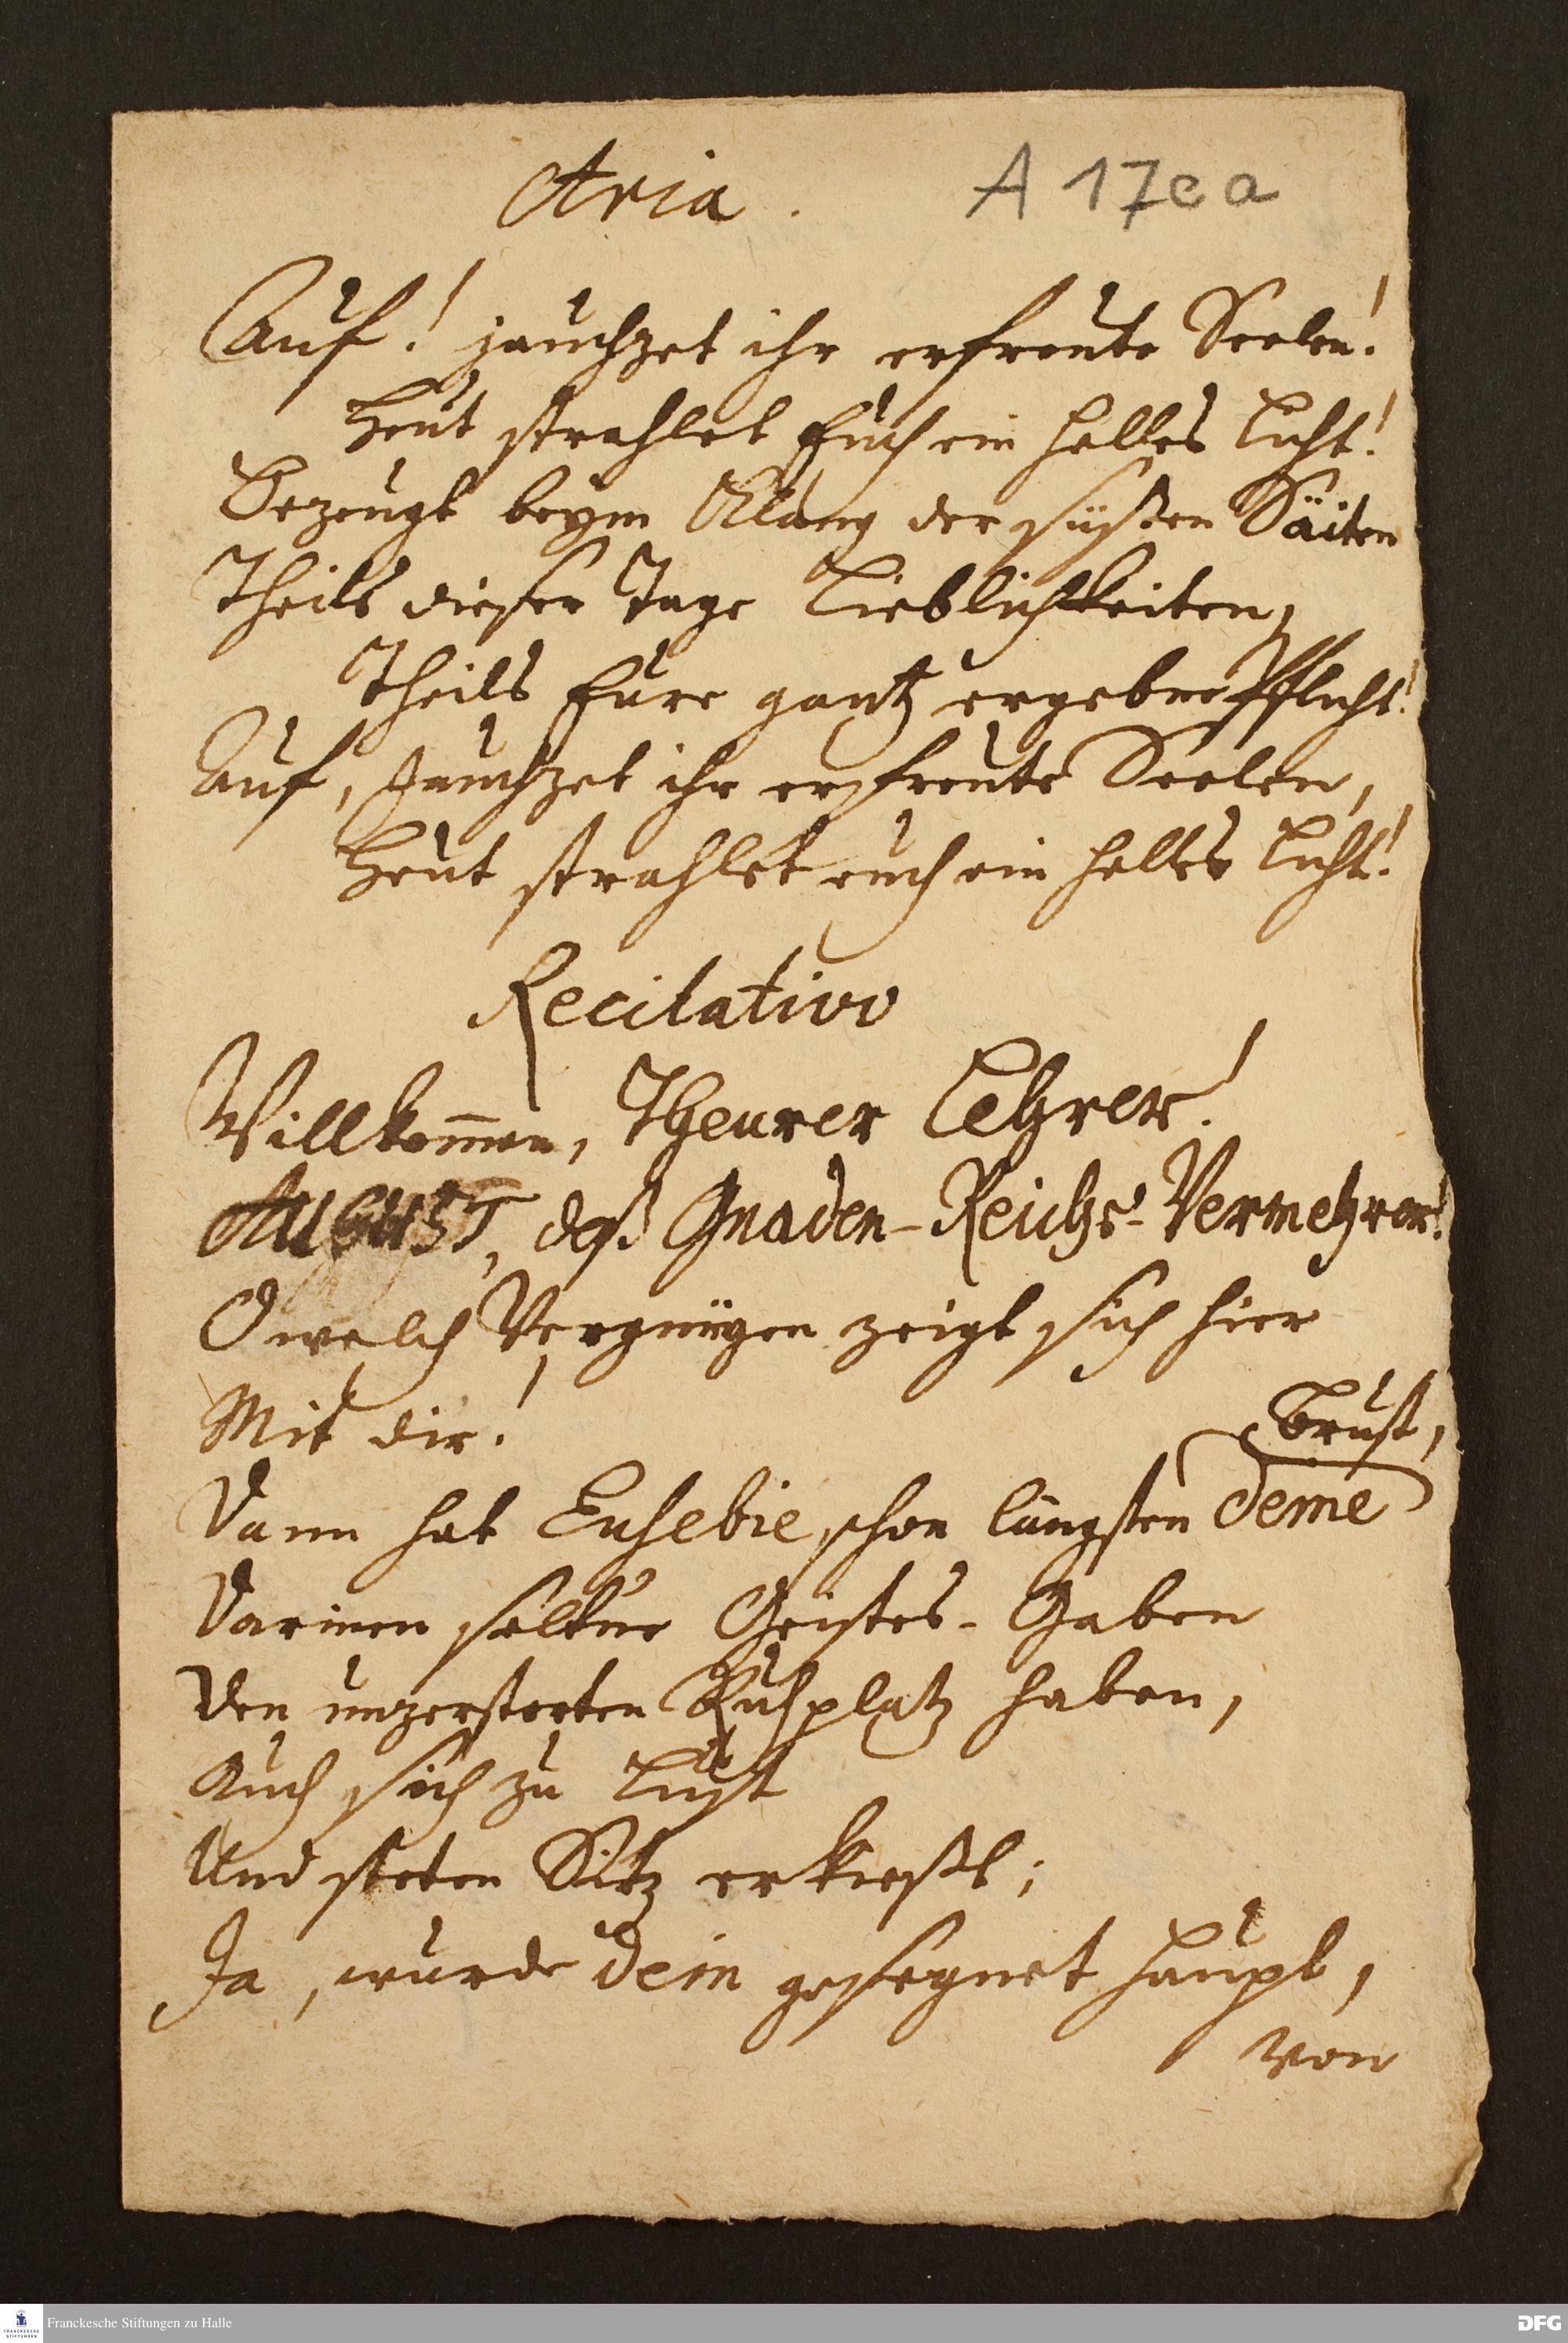 Aria. A 17 e a
Auf! jauchzet ihr erfreute Seelen!
Heut strahlet Euch ein helles Licht!
Bezeugt beym Klang der süßen Säiten
Theils dieser Tage Lieblichkeiten,
Theils Eure gantz ergebne Pflicht!
Auf, Jauchzet ihr erfreute Seelen,
Heut strahlet euch ein helles Licht!
Recitativo
Willkom̅en, Theurer Lehrer!
AUGUST, deß Gnaden-Reichs-Vermehrer!
O welch Vergnügen zeigt sich hier
Mit dir!
Brust,
Dann hat Eusebie schon längsten deine
Darinen seltne Geistes-Gaben
Den unzerstorten Ruhplatz haben,
Auch sich zu Lust
Und steten Sitz erkießt;
Ja, wurde dein gesegnet Haupt,
von
Franckesche Stiftungen zu Halle
FRANCKESCHE
STIFTUNGEN
DFG